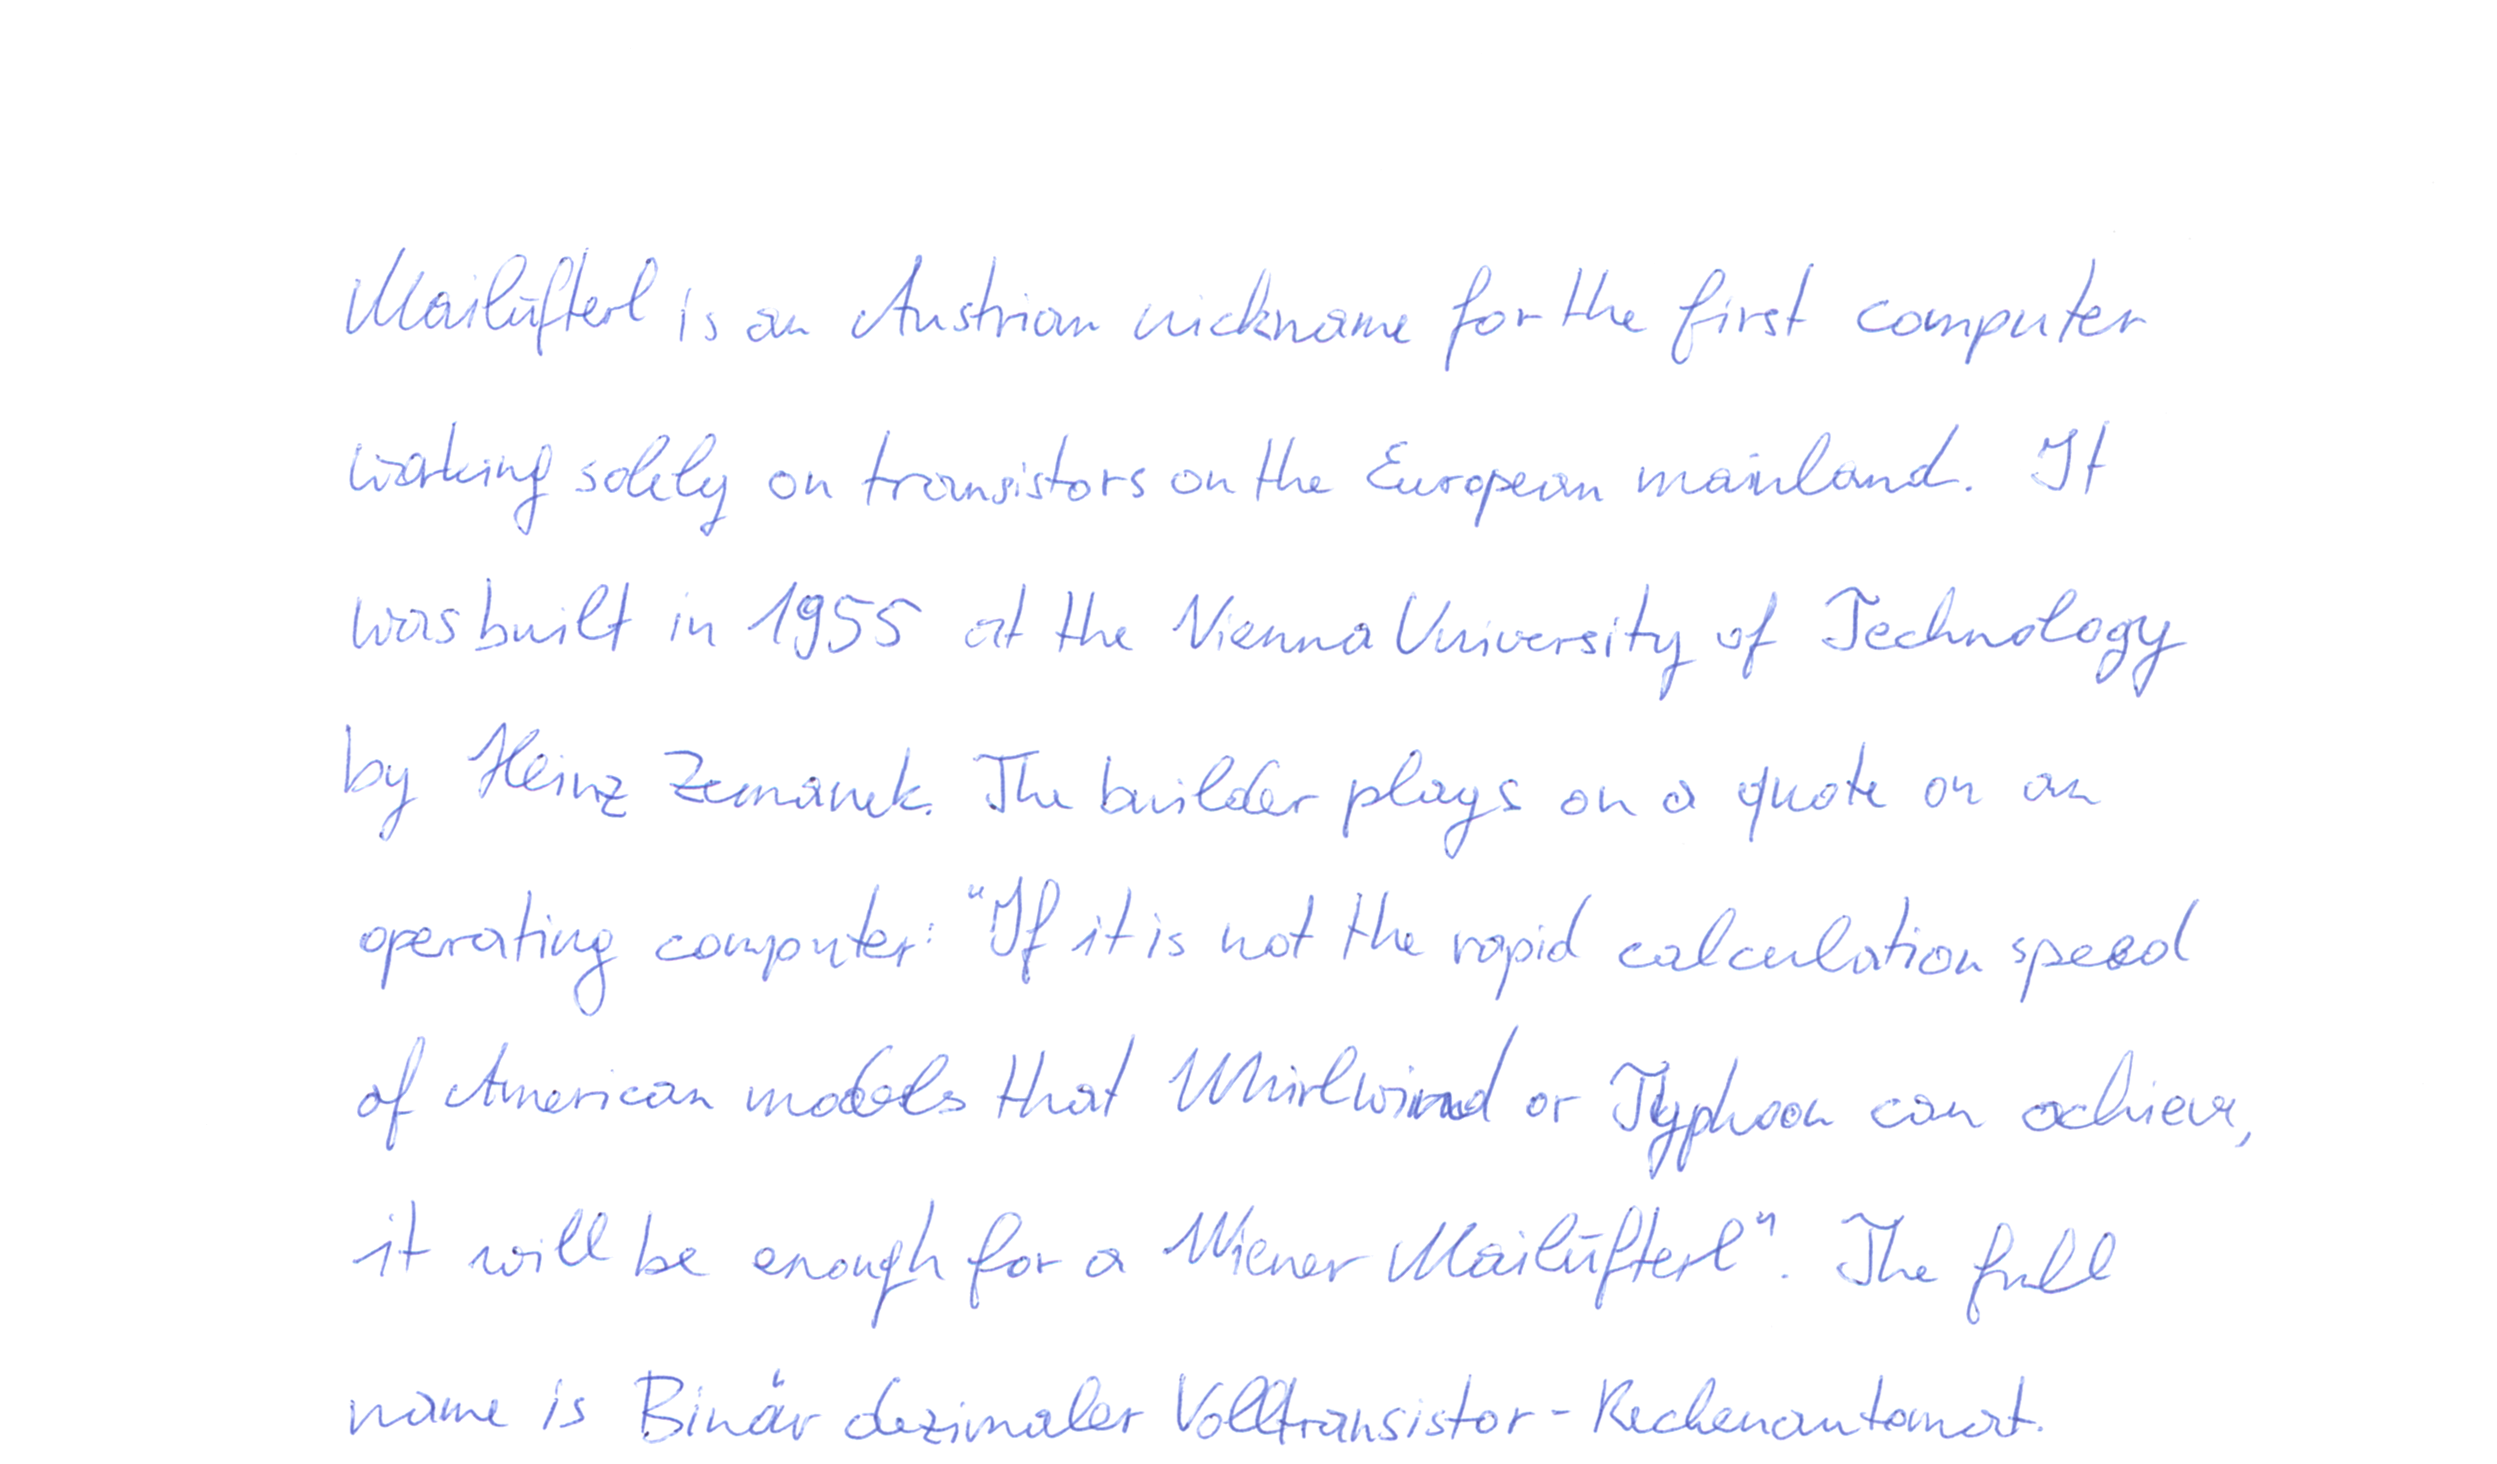 Mailüfterl is an Austrian nickname for the first computer
working solely on transistors on the European mainland. It
was built in 1955 at the Vienna University of Technology
by Heinz Zemanek. The builder plays on a quote on an
operating computer: "If it is not the rapid calculation speed
of American models that Whirlwind or Typhoon can achieve,
it will be enough for a Wiener Mailüfterl". The full
name is Binär dezimaler Volltransistor-Rechenautomat.